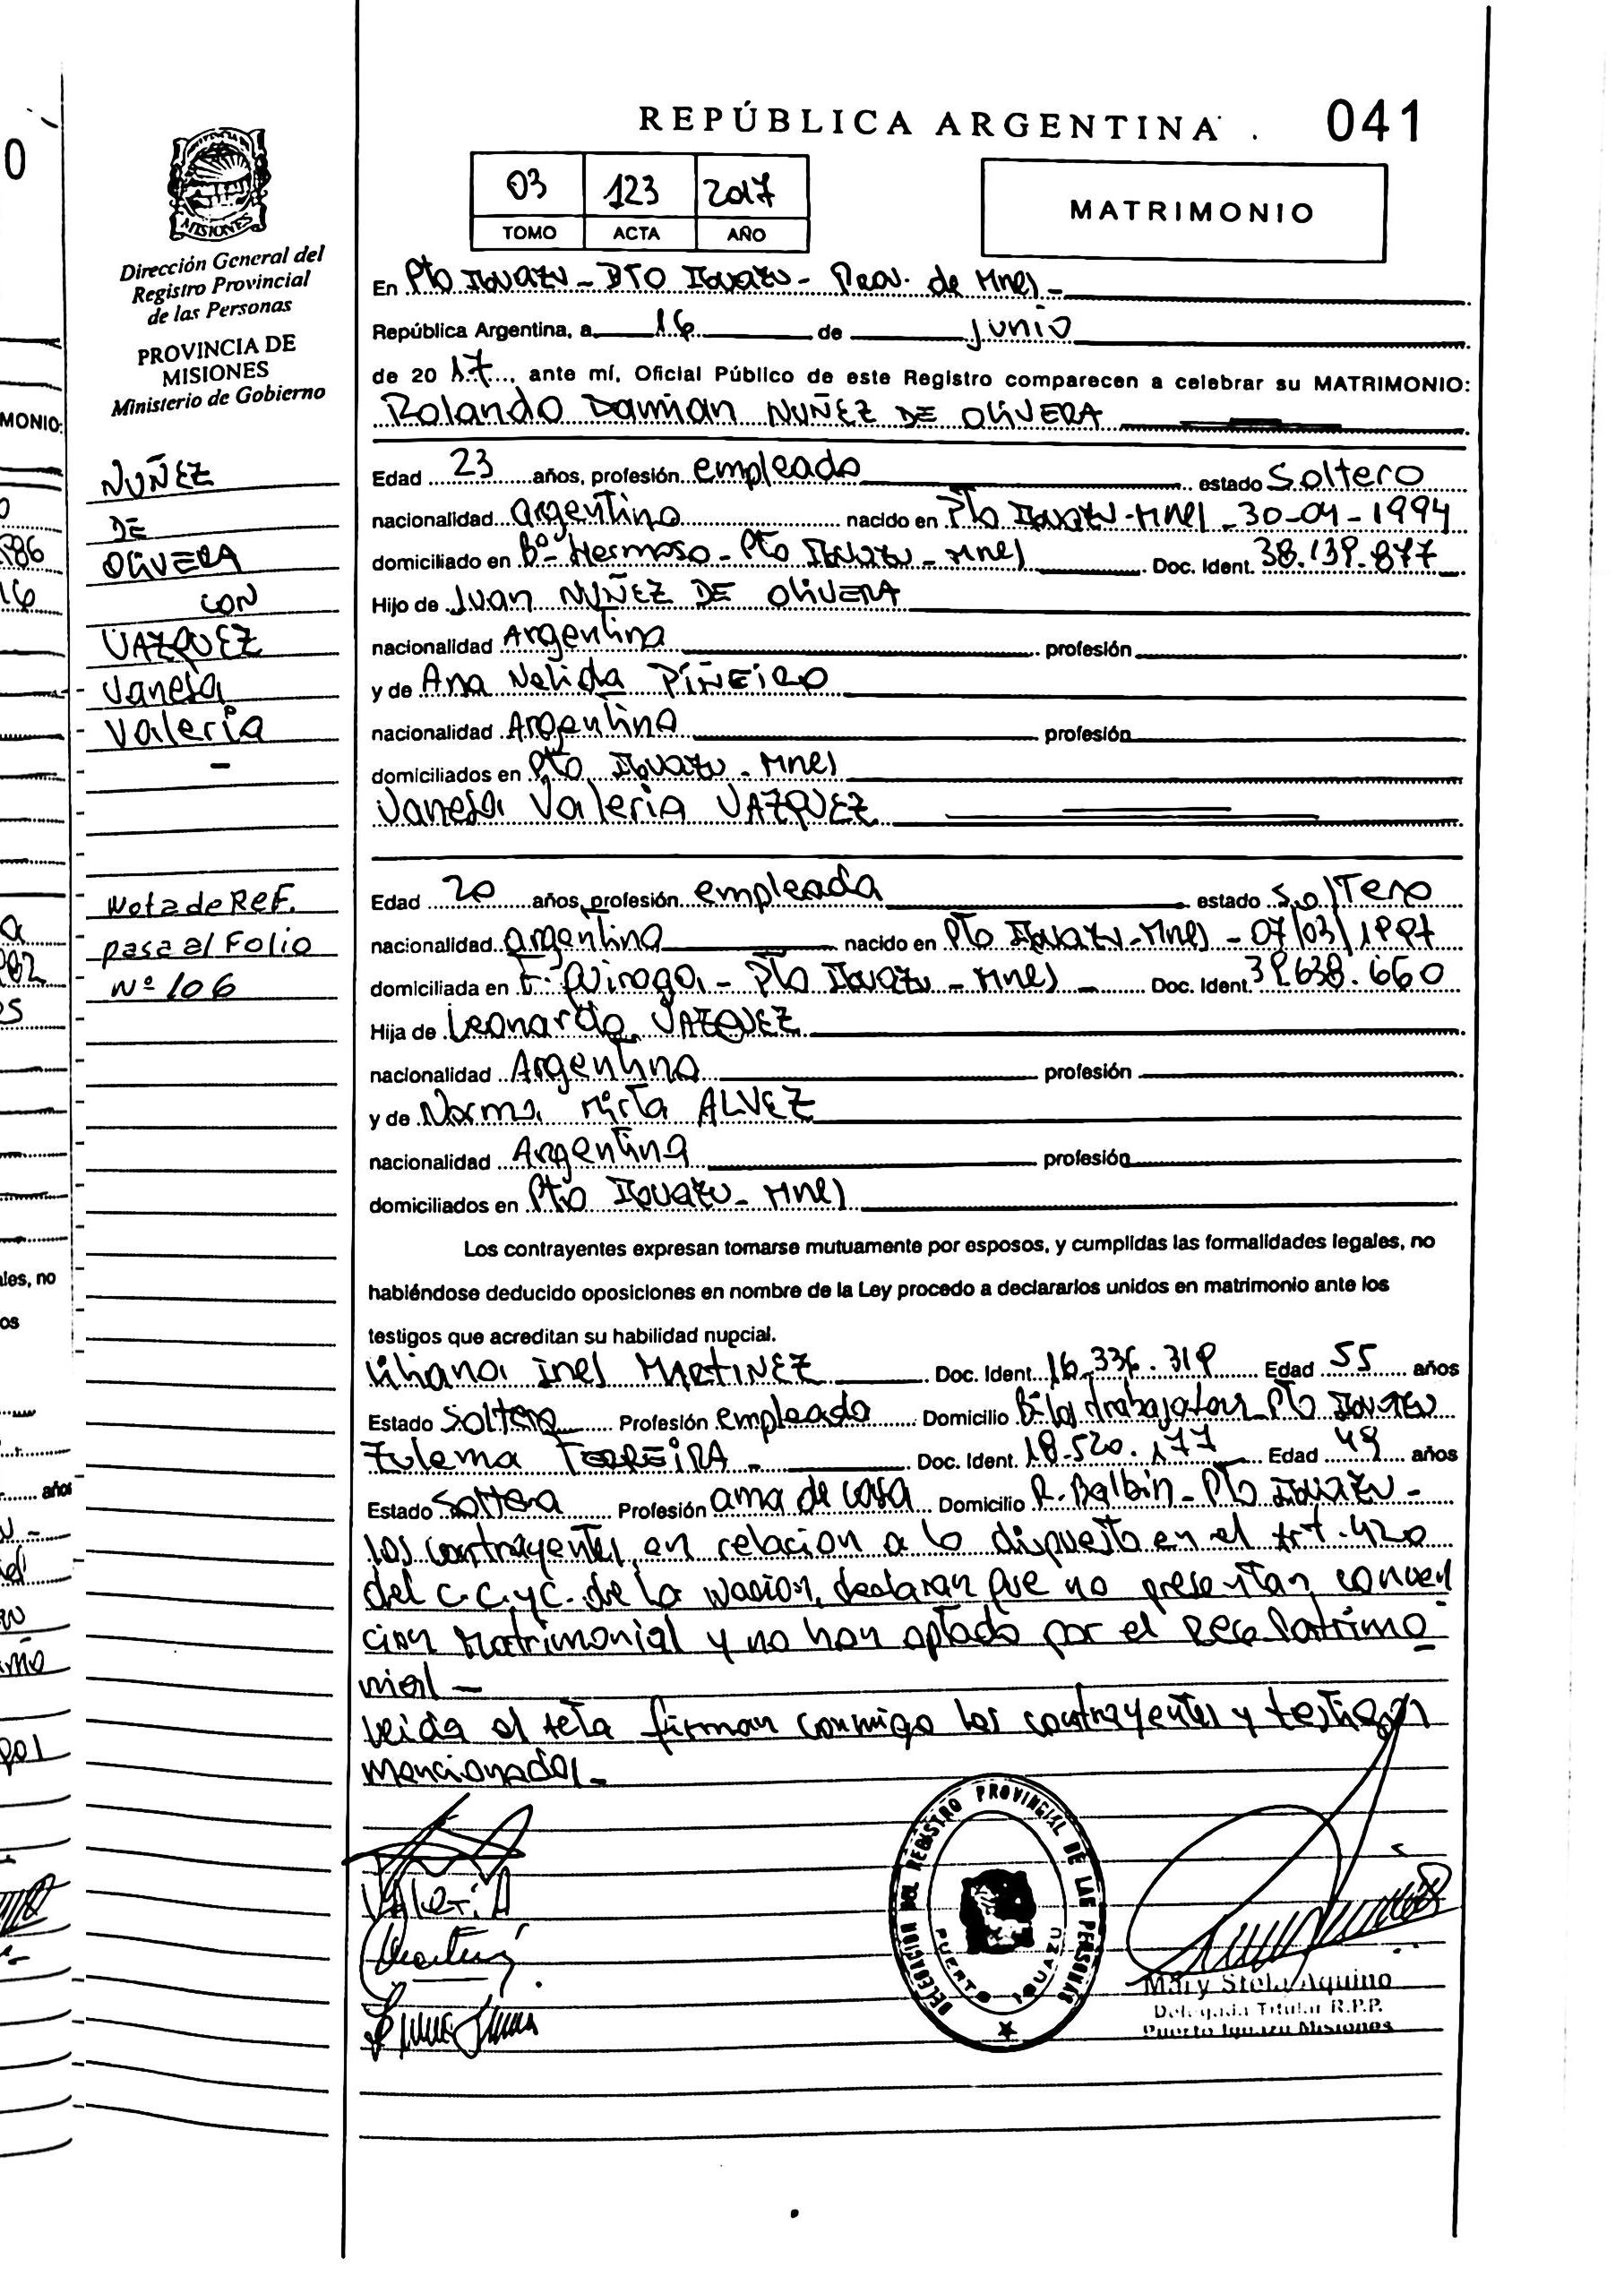 REPÚBLICA ARGENTINA . 041
03 123 2017
TOMO ACTA AÑO
MATRIMONIO
MISIONES
Dirección General del
Registro Provincial
de las Personas
PROVINCIA DE
MISIONES
Ministerio de Gobierno
NUÑEZ
DE
OLIVERA
CON
VAZQUEZ
Vanesa
Valeria
-
Nota de REF.
pasa al Folio
Nº 106
En Pto Iguazu - DTO Iguazu - Prov. de Mnes -
República Argentina, a 16 de junio
de 20 17, ante mí, Oficial Público de este Registro comparecen a celebrar su MATRIMONIO:
Rolando Damian NUÑEZ DE OLIVERA
Edad 23 años, profesión empleado estado Soltero
nacionalidad argentina nacido en Pto Iguazu - Mnes - 30-04-1994
domiciliado en Bº Hermoso - Pto Iguazu - Mnes Doc. Ident. 38.139.877
Hijo de Juan NUÑEZ DE OLIVERA
nacionalidad Argentina profesión
y de Ana Nelida PIÑEIRO
nacionalidad Argentina profesión
domiciliados en Pto Iguazu - Mnes
Vanesa Valeria VAZQUEZ
Edad 20 años, profesión empleada estado Soltero
nacionalidad argentina nacido en Pto Iguazu - Mnes - 07/03/1997
domiciliada en F. Quiroga - Pto Iguazu - Mnes - Doc. Ident. 39638.660
Hija de Leonardo VAZQUEZ
nacionalidad Argentina profesión
y de Norma Mirta ALVEZ
nacionalidad Argentina profesión
domiciliados en Pto Iguazu - Mnes
Los contrayentes expresan tomarse mutuamente por esposos, y cumplidas las formalidades legales, no
habiéndose deducido oposiciones en nombre de la Ley procedo a declararlos unidos en matrimonio ante los
testigos que acreditan su habilidad nupcial.
Liliana Ines MARTINEZ Doc. Ident. 16.336.319 Edad 55 años
Estado Soltera Profesión empleada Domicilio Bº los trabajadores Pto Iguazu
Zulema FERREIRA - Doc. Ident. 18.520.177 Edad 49 años
Estado Soltera Profesión ama de casa Domicilio R. Balbin - Pto Iguazu -
los contrayentes, en relacion a lo dispuesto en el Art. 420
del C.C. y C. de la Nacion, declaran que no presentan conven
cion Matrimonial y no han optado por el Reg. Patrimo
nial -
Leida el Acta firman conmigo los contrayentes y testigos
mencionados -
Valeria
DELEGACION DEL REGISTRO PROVINCIAL DE LAS PERSONAS
PUERTO IGUAZU
Mary Stela Aquino
Delegada Titular R.P.P.
Puerto Iguazu Misiones